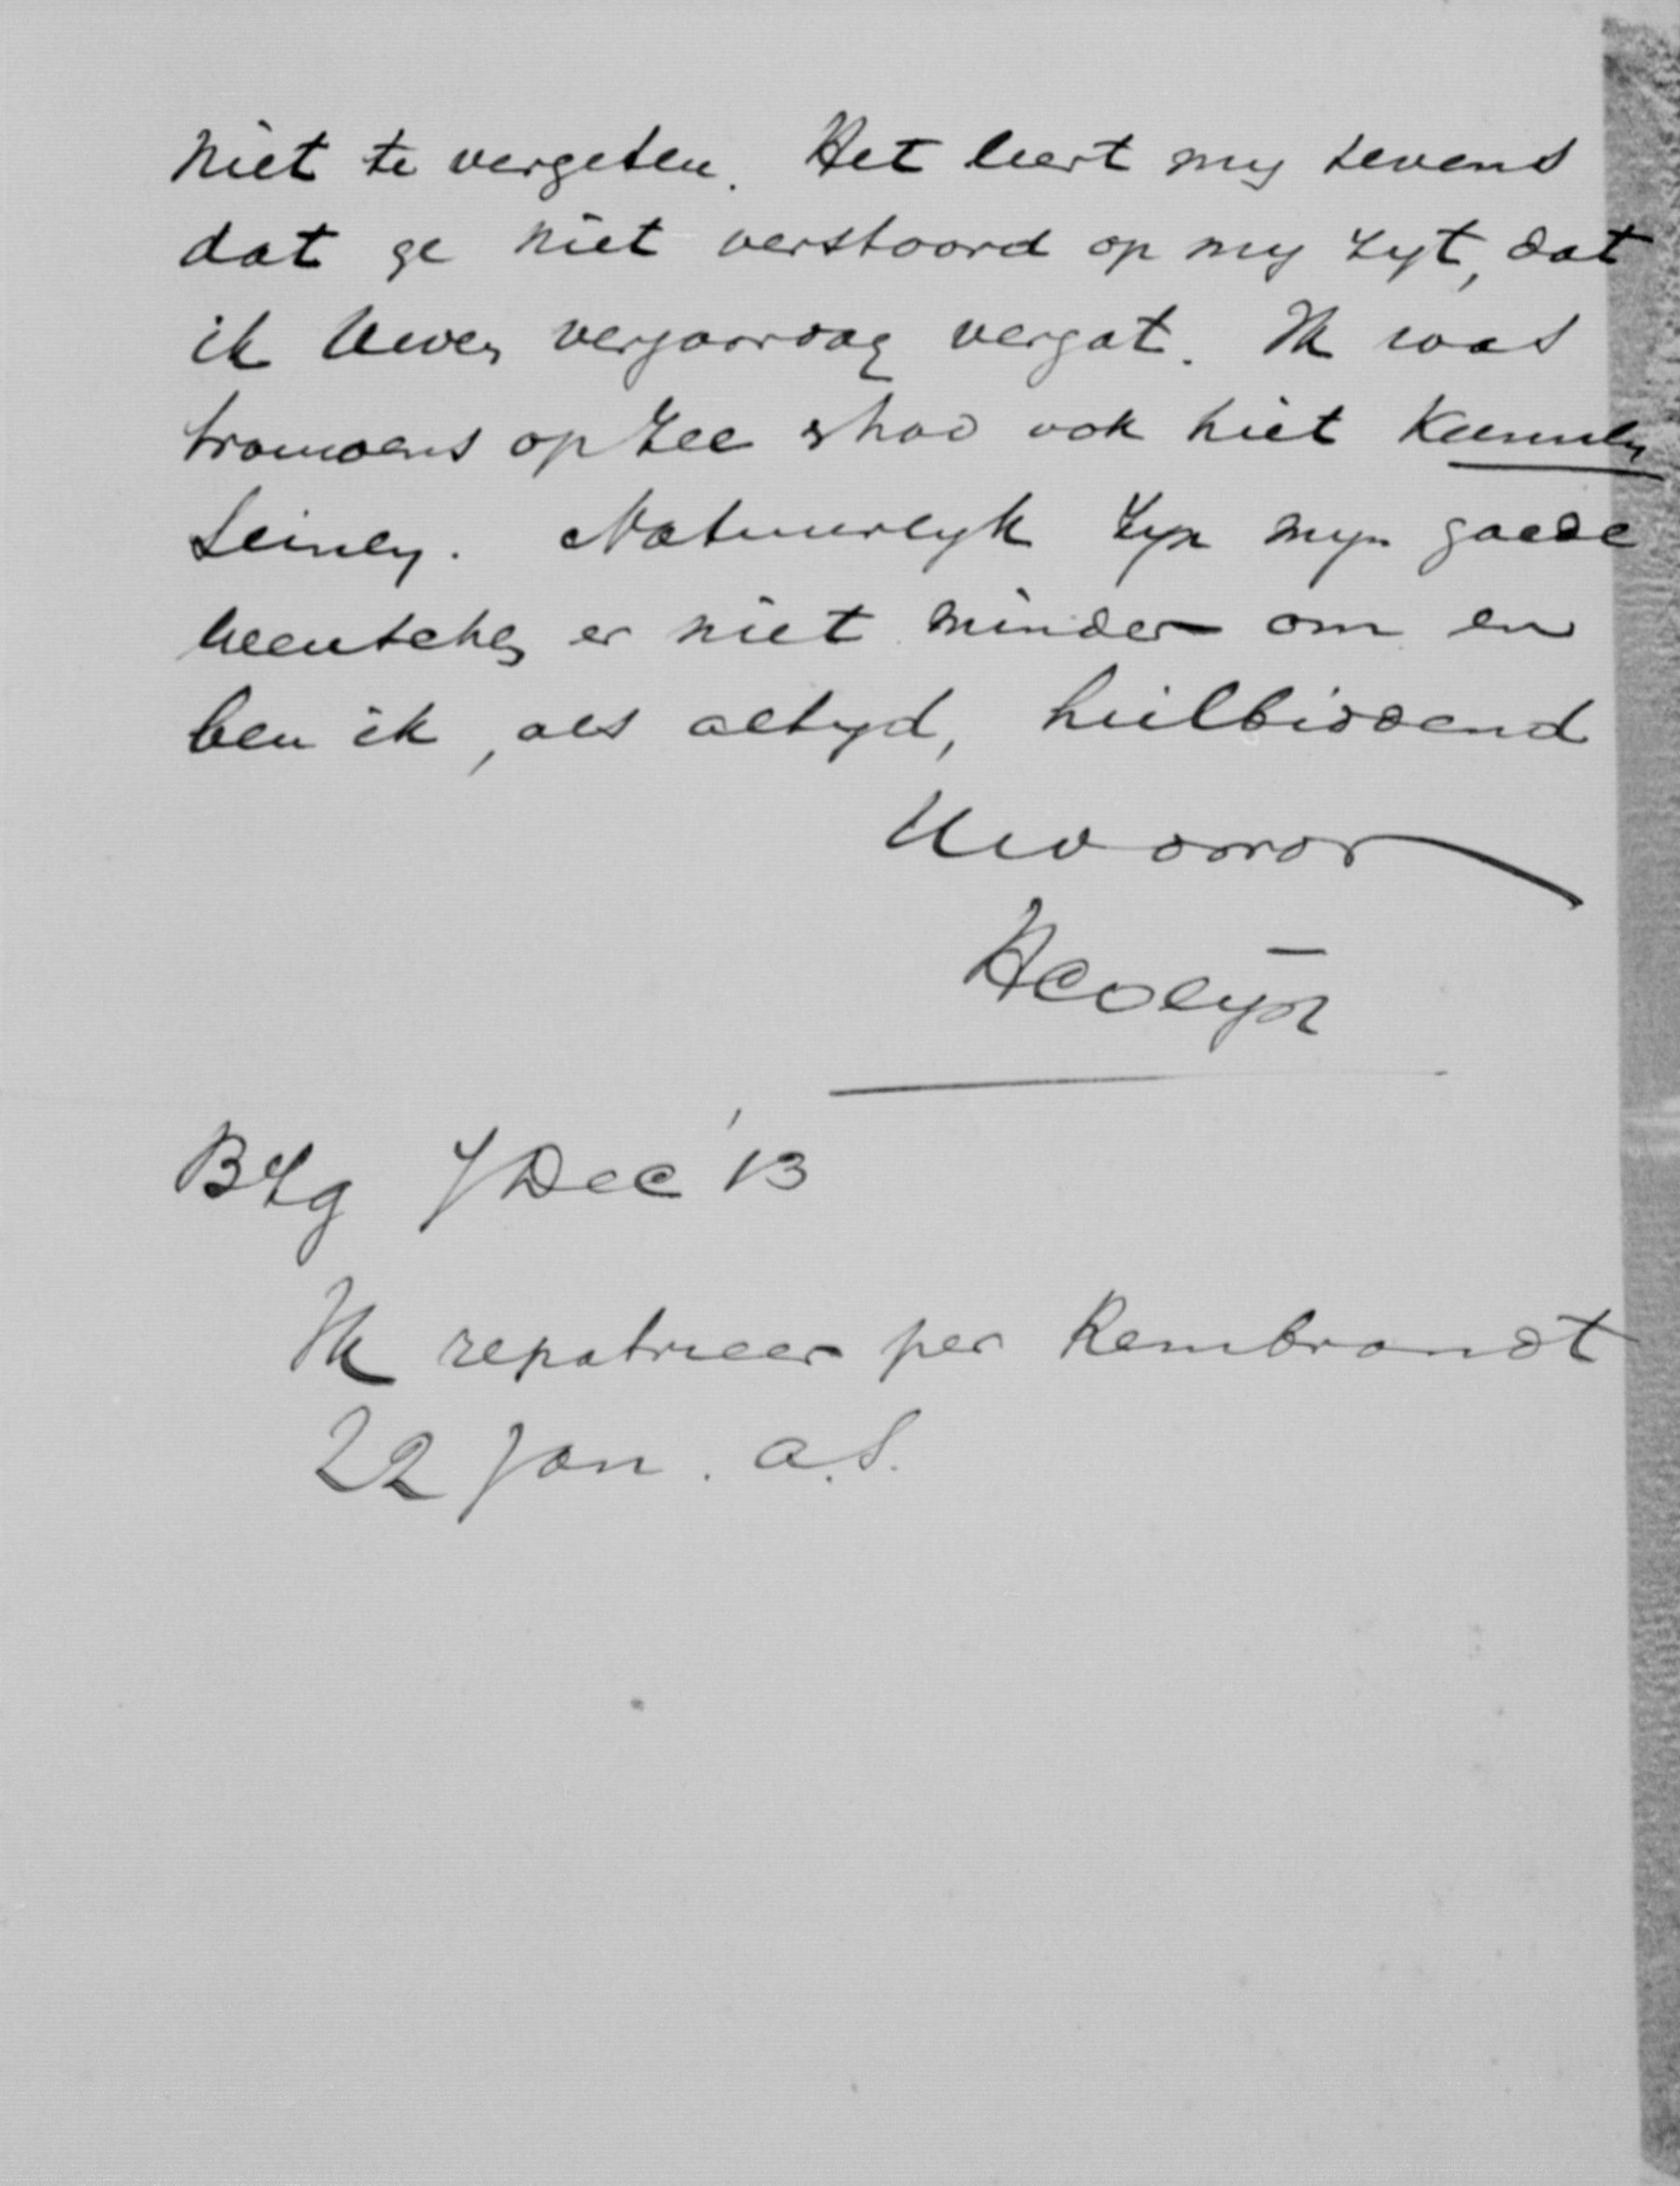 niet te vergeten. Het leert my tevens
dat ge niet verstoord op my zyt, dat
ik Uwen verjaardag vergat. Ik was
trouwens op zee & had ook niet kunnen
seinen. Natuurlyk zyn myn goede
wenschen er niet minder om en
ben ik, als altyd, heilbiddend
Uw dw dr
HColyn
Bzg 7 Dec '13
Ik repatrieer per Rembrandt
22 Jan. a.s.